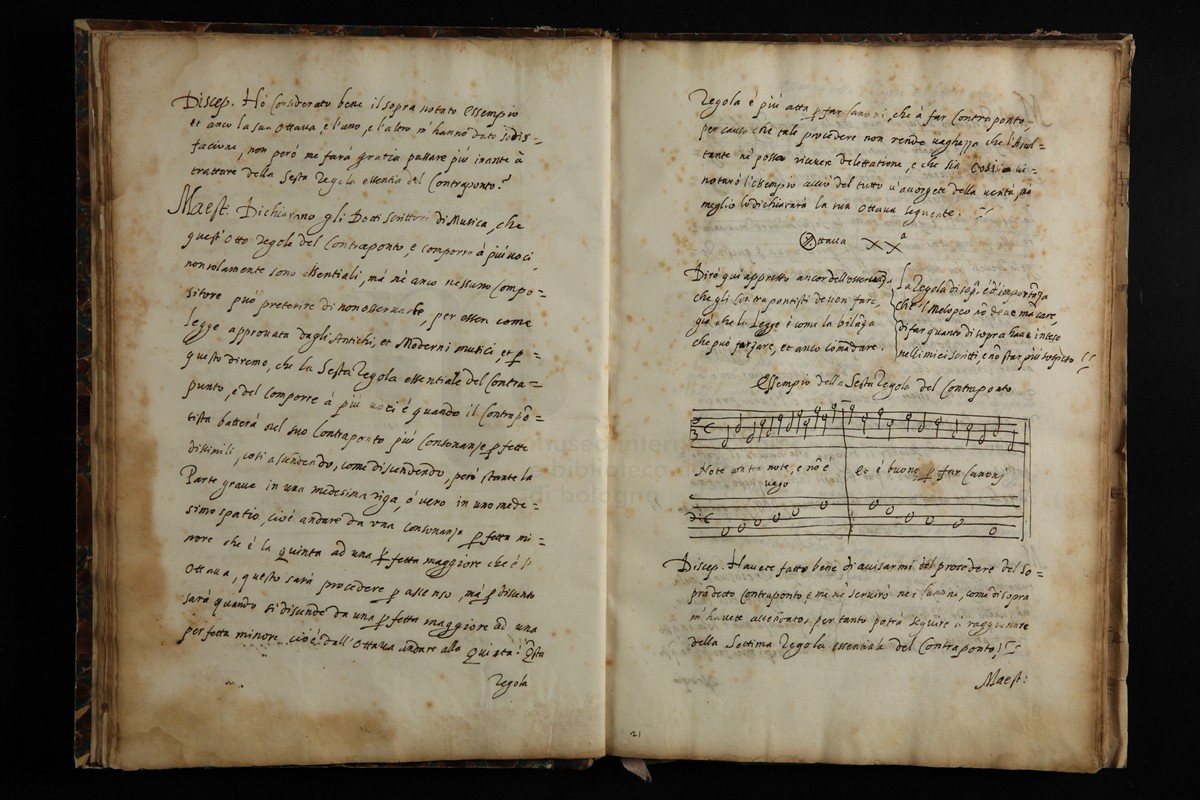 Discep. Hò Considerato bene il sopra notato Essempio
et anco la sua Ottava, e l'uno, e l'altro m'hanno dato sodis=
fatione, non però me farà gratia passare più inante à
trattare della Sesta regola essentia del Contraponto?
Maest: Dichiarano gli Dotti Scrittori di Musica, che
quest'otto regole del Contraponto, e comporre à più voci,
non solamente sono essentiali, mà nè anco nessuno Compo=
sitore può preterire di non osservarle, per esser come
legge approvata dagli Antichi, et Moderni musici, et p =
questo diremo, che la Sesta regola essentiale del Contra=
punto, e del comporre à più voci è quando il Contrapō=
tista batterà nel suo Contraponto più Consonanze pfette
dissimili, così ascendendo, come discendendo, però stante la
Parte grave in una medesima riga, ò vero in uno mede=
simo spatio, cioè andare da una Consonanza pfetta mi=
nore che è la quinta ad una pfetta maggiore che è l'
Ottava, questo sarà procedere p ascenso, mà p disenso
sarà quando si discende da una pfetta maggiore ad una
perfetta minore, cioè dall'Ottava andare alla Quinta: Qsta
regola
regola è più atta p far Canoni, che à far Contraponto,
per causa che tale procedere non rende vaghezza che l'Ascol=
tante nè possa ricevere delettatione, e che sia Cossì vi=
notarò l'essempio acciò del tutto v'avorgete della verità,
meglio lo dichiararà la sua Ottava seguente:
Ottava
Dirò quì appresso ancor dell'osservanza
che gli Contrapontisti devon fare,
già che la Legge è come la bilāza
che può forzare, et anco comādare.
La Regola di sop. è d'importāza
che 'l Melopeo nō deve mācare,
di far quanto di sopra hava inteso
nelli miei scritti, e nō star più sospeso
Essempio della Sesta regola del Contraponto
Note contra note, e nō è
vago
et è buone p far Canoni
Discep. Havete fatto bene d'avisarmi del procedere del So=
pradetto Contraponto, e mi nè servirò ne i Canoni, come di sopra
m'havete accennato, per tanto potrà seguire à raggionare
della Settima regola essentiale del Contraponto?
Maest:
21
museo internazionale
e biblioteca della
di bologna